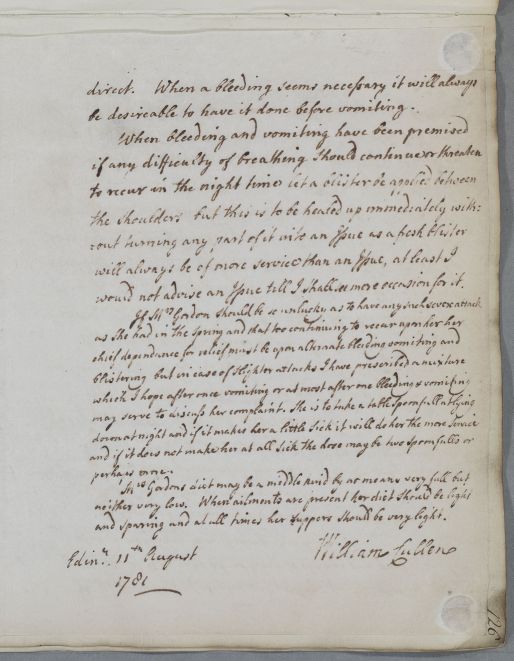 direct. When a bleeding seems necessary it will always
be desireable to have it done before vomiting.
When bleeding and vomiting have been premised
if any difficulty of breathing should continue or threaten
to recur in the night time let a blister be applied between
the shoulders but this is to be healed up immediately with:
:out turning any part of it into an Issue as a fresh blister
will always be of more service than an Issue, at least I
would not advise an Issue till I shall see more occasion for it.
If Mrs Gordon should be so unlucky as to have any such severe attack
as she had in the spring and that too continuing to recur upon her her
chief dependance for relief must be upon alternate bleeding vomiting and
blistering but in case of slighter attacks I have prescribed a mixture
which I hope after once vomiting or at most after one bleeding & vomiting
may serve to discuss her complaint. She is to take a tablespoonfull at lying
down at night and if it makes her a little sick it will do her the more service
and if it does not make her at all sick the dose may be two spoonfulls or
perhaps more.
Mrs Gordons diet may be a middle kind by no means very full but
neither very low. When ailments are present her diet should be light
and sparing and at all times her suppers should be very light.
Edinr. 11th August
1781
William Cullen
126